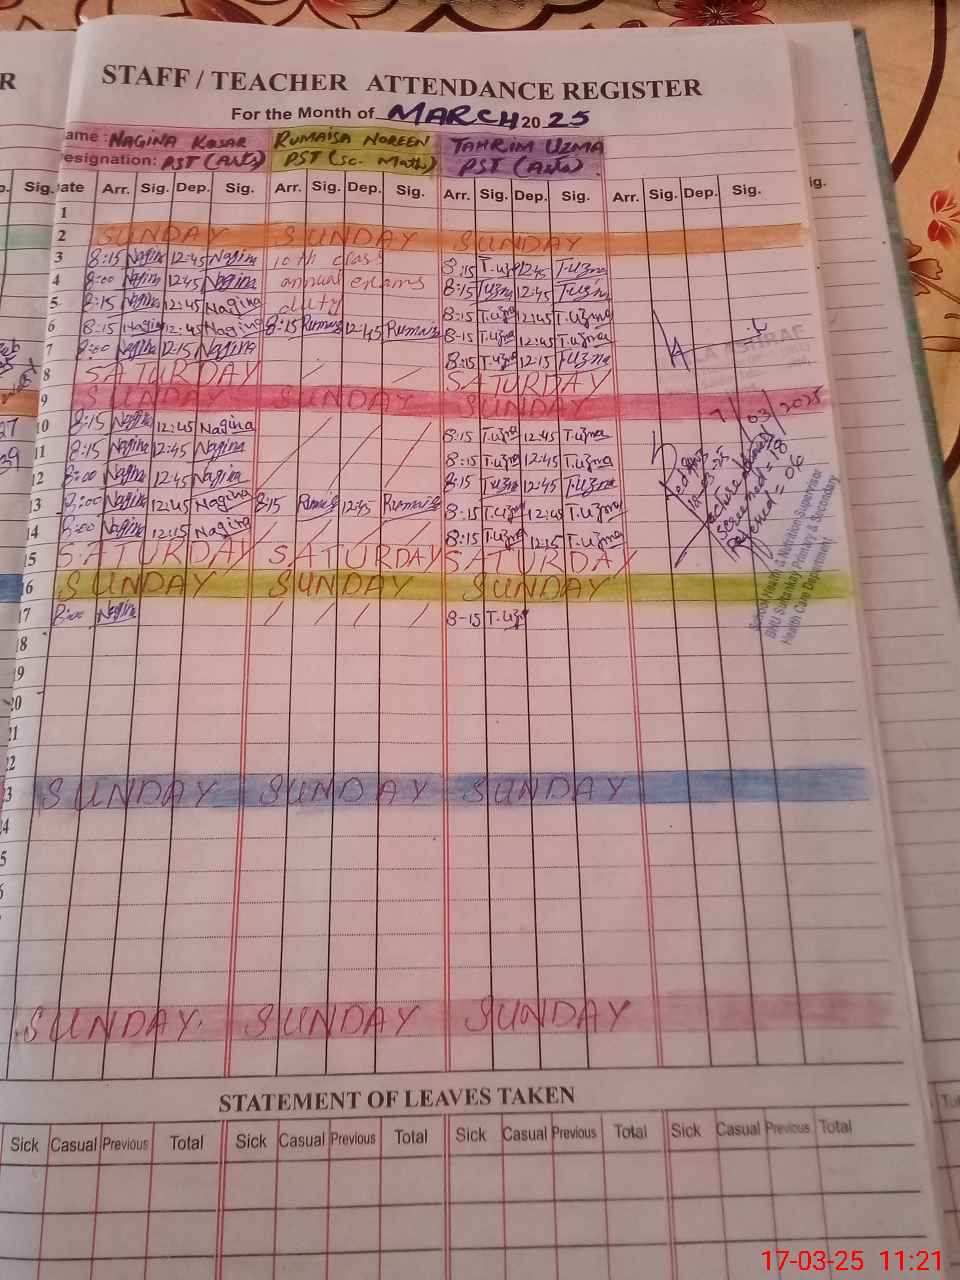 STAFF / TEACHER ATTENDANCE REGISTER
For the Month of MARCH 2025
ame : NAGINA KOSAR RUMAISA NOREEN TAHRIM UZMA
esignation: PST (Arts) PST (Sc. Math) PST (Arts)
Sig. ate Arr. Sig. Dep. Sig. Arr. Sig. Dep. Sig. Arr. Sig. Dep. Sig. Arr. Sig. Dep. Sig. ig.
1
2 SUNDAY SUNDAY SUNDAY
3 8:15 Nagina 12:45 Nagina 10th class 8:15 T.uzma 12:45 T.uzma
4 8:00 Nagina 12:45 Nagina annual exams 8:15 T.uzma 12:45 T.uzma
5 8:15 Nagina 12:45 Nagina duty 8:15 T.uzma 12:45 T.uzma
6 8:15 Nagina 12:45 Nagina 8:15 Rumaisa 12:45 Rumaisa 8-15 T.uzma 12:45 T.uzma
7 8:00 Nagina 12:15 Nagina 8:15 T.uzma 12:15 T.uzma
8 SATURDAY SATURDAY
9 SUNDAY SUNDAY SUNDAY
10 8:15 Nagina 12:45 Nagina 8:15 T.uzma 12:45 T.uzma
11 8:15 Nagina 12:45 Nagina 8:15 T.uzma 12:45 T.uzma
12 8:00 Nagina 12:45 Nagina 8:15 T.uzma 12:45 T.uzma
13 8:00 Nagina 12:45 Nagina 8:15 Rumaisa 12:45 Rumaisa 8-15 T.uzma 12:45 T.uzma
14 8:00 Nagina 12:15 Nagina 8:15 T.uzma 12:15 T.uzma
15 SATURDAY SATURDAY SATURDAY
16 SUNDAY SUNDAY SUNDAY
17 8:00 Nagina 8-15 T.uzma
18
19
20
21
22
23 SUNDAY SUNDAY SUNDAY
SUNDAY SUNDAY SUNDAY
7/03/2025
Screened = 18
= 06
School Health & Nutrition Supervisor
Primary & Secondary
Health Care Department
STATEMENT OF LEAVES TAKEN
Sick Casual Previous Total Sick Casual Previous Total Sick Casual Previous Total Sick Casual Previous Total
17-03-25 11:21